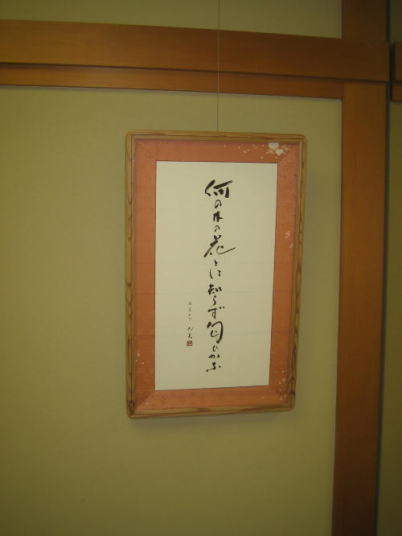 何の木の花とは知らず匂ひかな